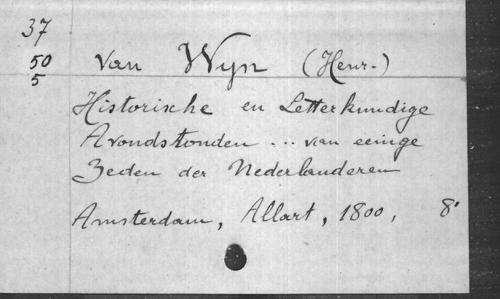 37
50
5
van Wyn (Henr.)
Historische en Letterkundige
Avondstonden ... van eenige
Zeden der Nederlanderen
Amsterdam, Allart, 1800, 8°